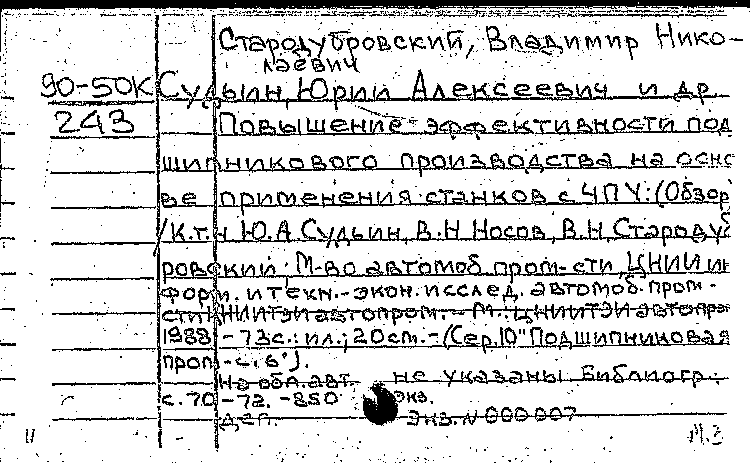 Стародубровский, Владимир Нико-
лаевич
90-50К Судьин, Юрий Алексеевич и др.
243 Повышение эффективности под
шипникового производства на осно
ве применения станков с ЧПУ: (Обзор
/К.т.н Ю.А Судьин, В.Н Носов, В.Н. Стародуб
ровский; М-во автомоб пром-сти, ЦНИИ ин
форм. и техн.-экон. исслед. автомоб. пром-
сти ЦНИИТЭИавтопром. - М.: ЦНИИТЭИавтопро
1988 - 73с.: ил.; 20см. - (Сер.10 "Подшипниковая
пром-с. 6").
На обл. авт. не указаны. Библиогр.:
с. 70-72. -850 экз.
Деп. Экз. N 000007
11 М.З